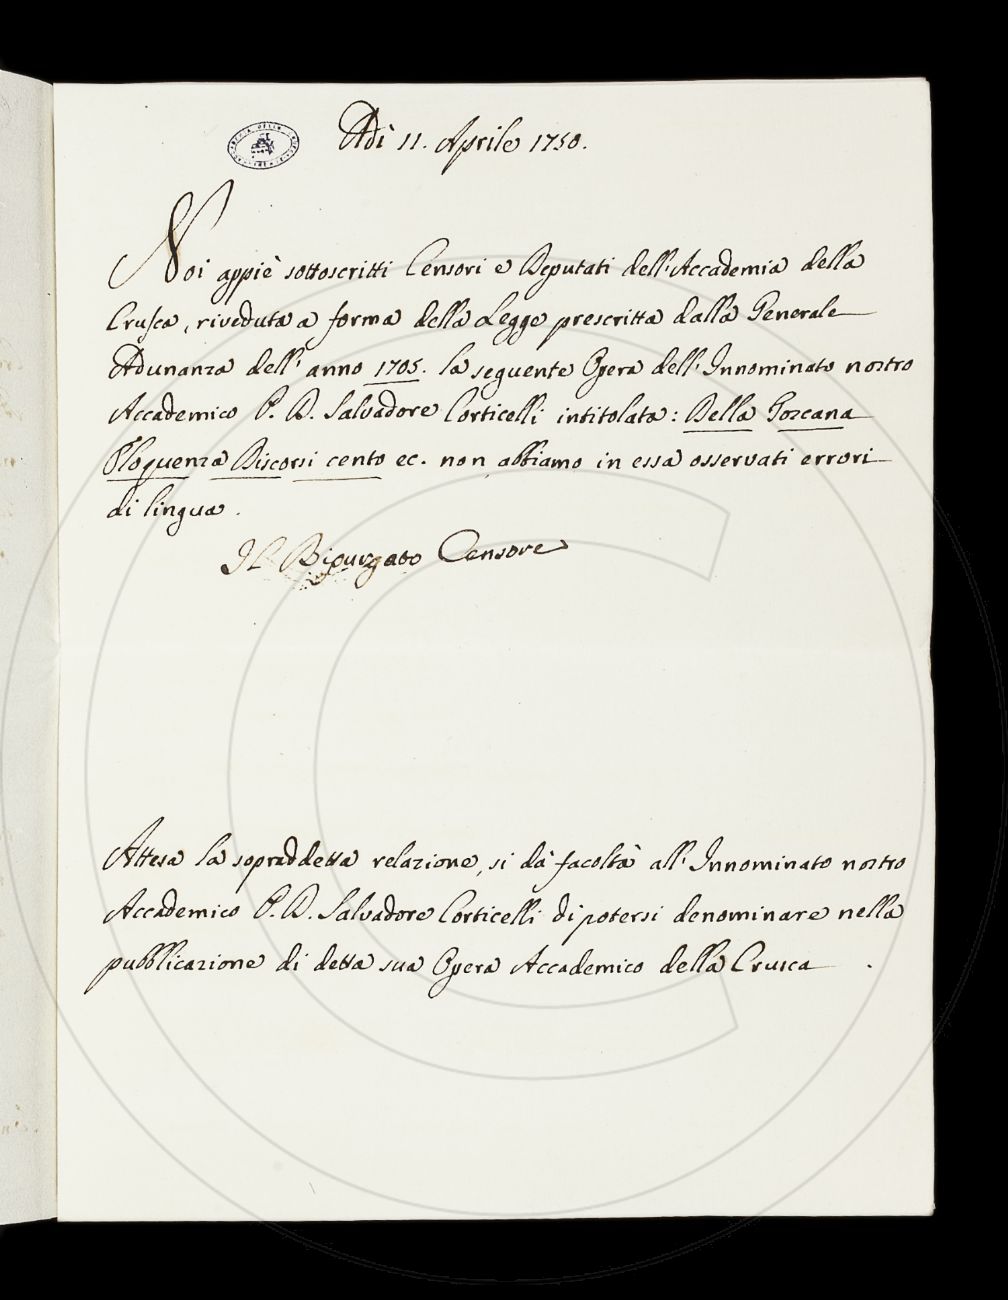 Adì 11. Aprile 1750.
Noi appiè sottoscritti Censori e Deputati dell'Accademia della
Crusca, riveduta a forma della Legge prescritta dalla Generale
Adunanza dell'anno 1705. la seguente Opera dell'Innominato nostro
Accademico P. D. Salvadore Corticelli intitolata: Della Toscana
Eloquenza Discorsi cento ec. non abbiamo in essa osservati errori
di lingua.
Il Ripurgato Censore
Attesa la sopraddetta relazione, si dà facoltà all'Innominato nostro
Accademico P. D. Salvadore Corticelli di potersi denominare nella
pubblicazione di detta sua Opera Accademico della Crusca.